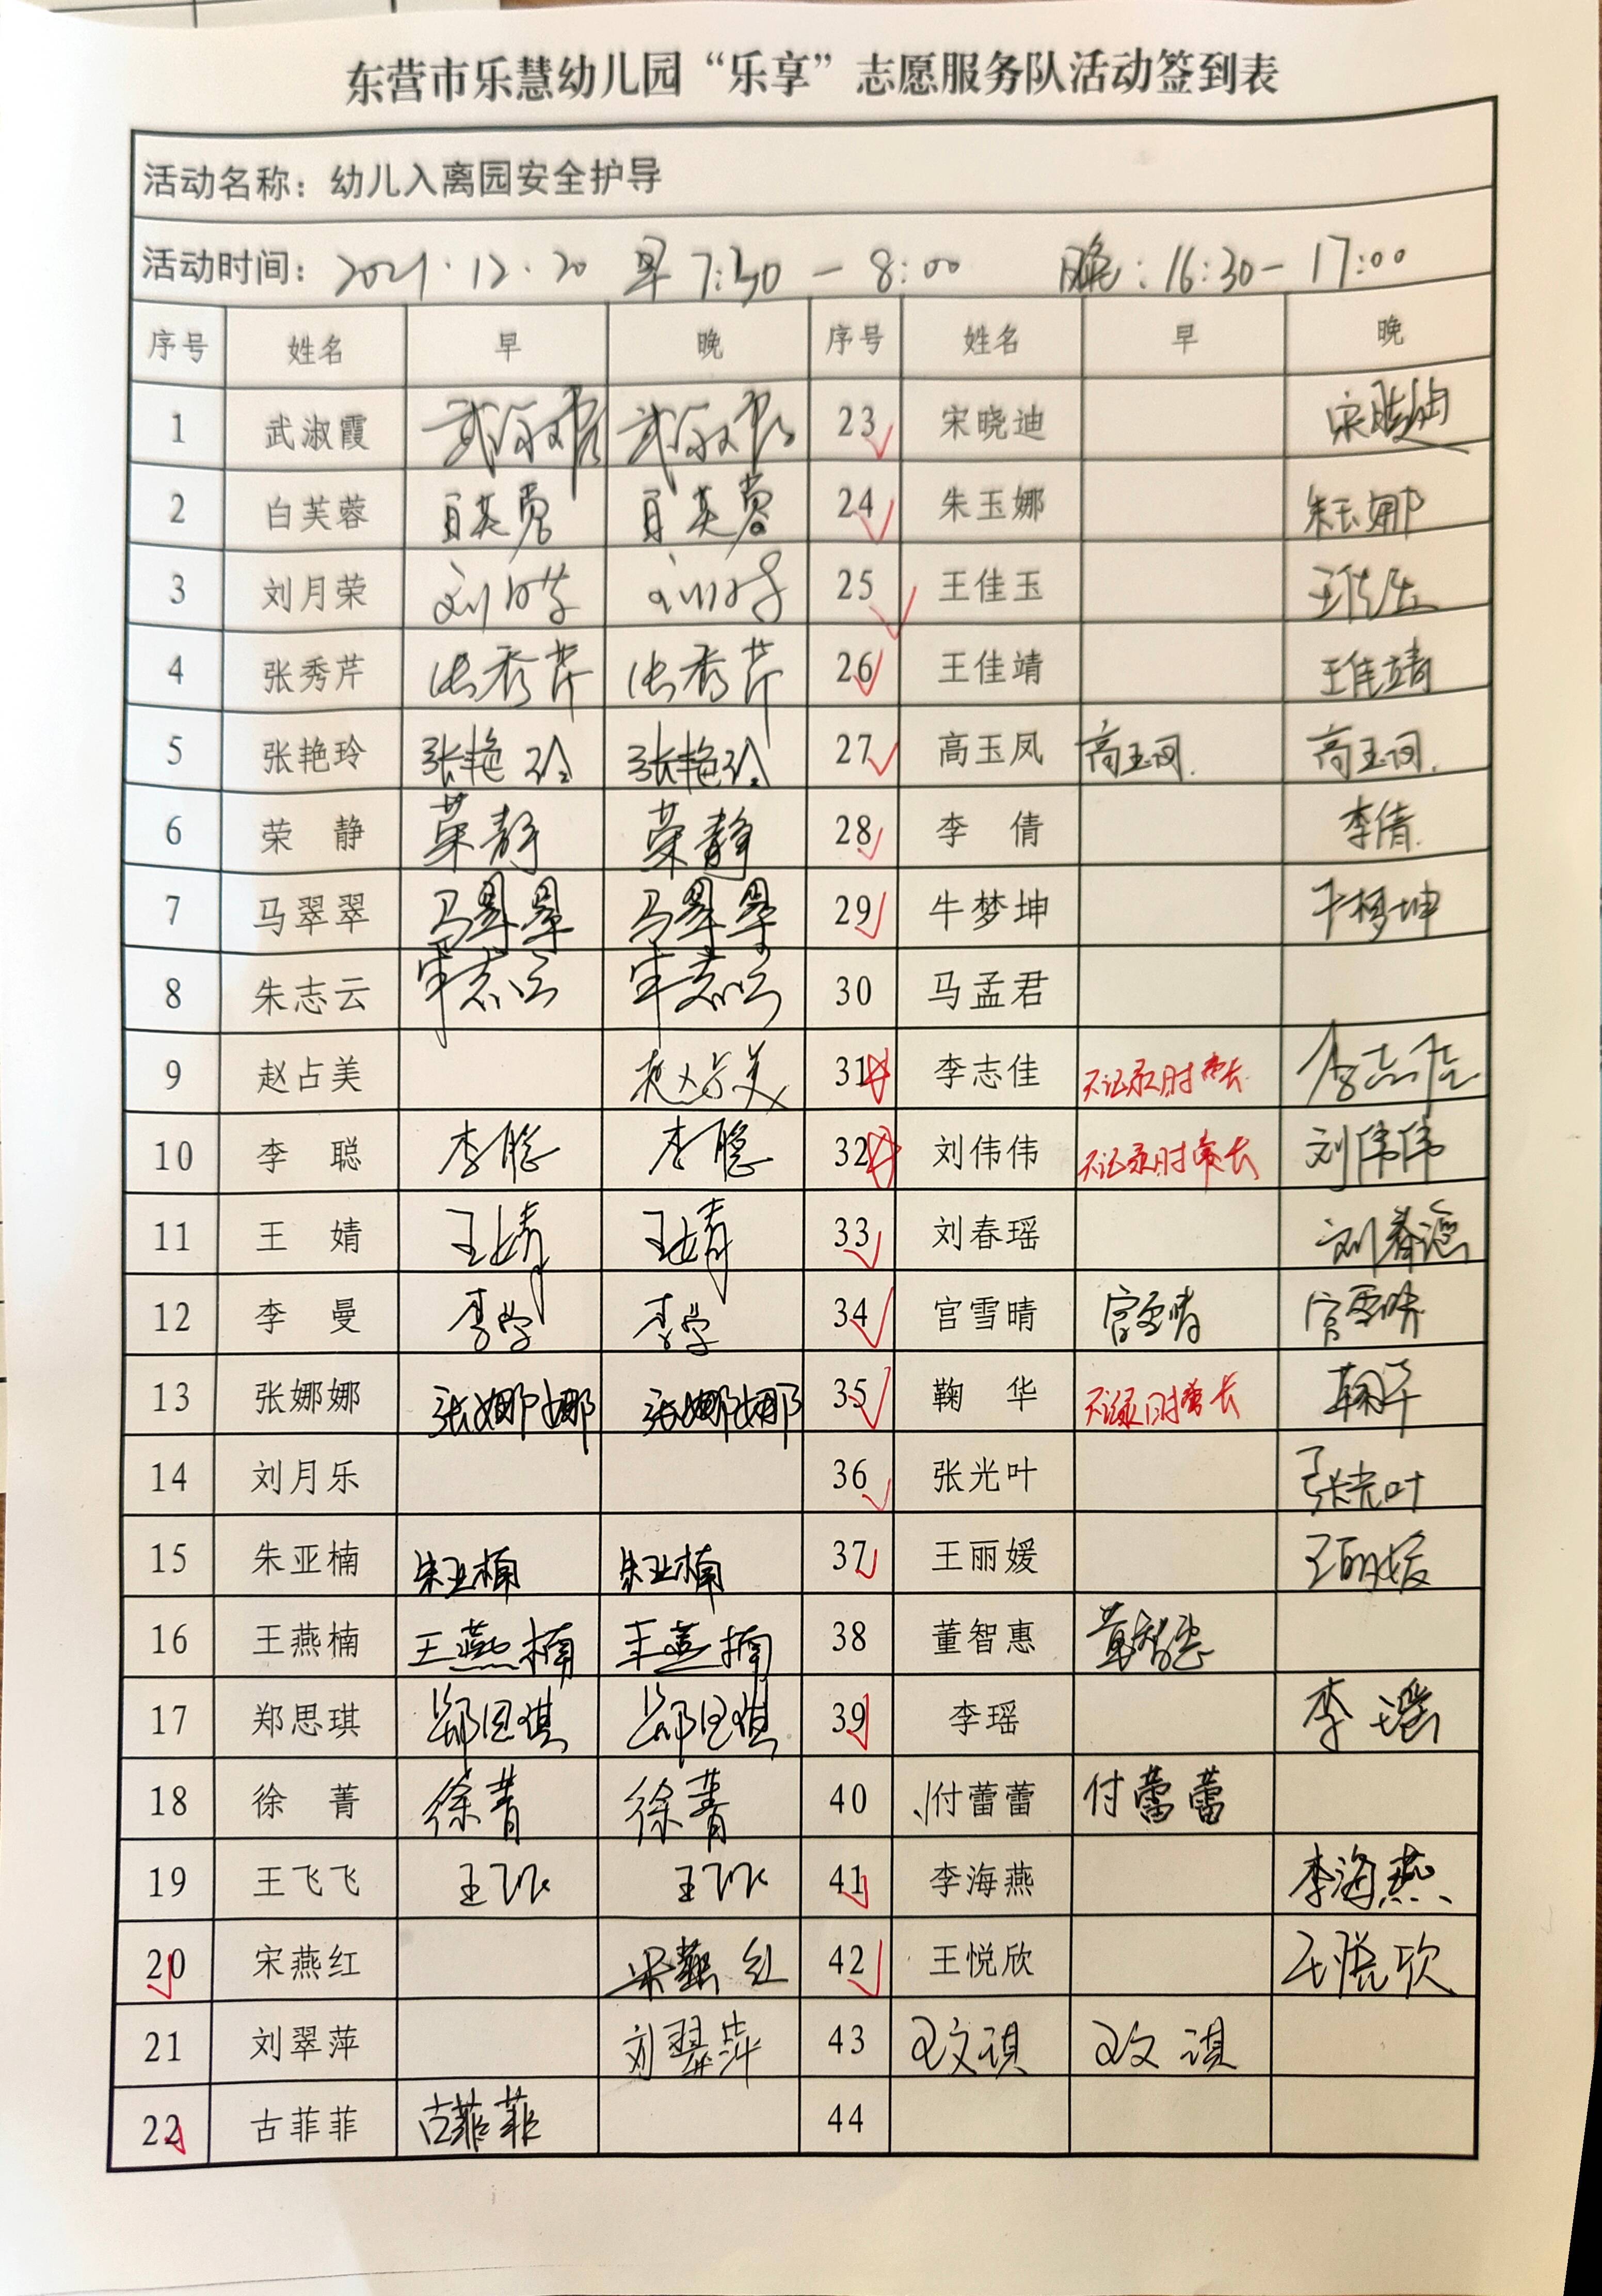 东营市乐慧幼儿园“乐享”志愿服务队活动签到表
活动名称：幼儿入离园安全护导
活动时间：2021.12.20 早 7:30 — 8:00 晚：16:30 — 17:00
序号 姓名 早 晚 序号 姓名 早 晚
1 武淑霞 武淑霞 武淑霞 23 宋晓迪 宋晓迪
2 白芙蓉 白芙蓉 白芙蓉 24 朱玉娜 朱玉娜
3 刘月荣 刘月荣 刘月荣 25 王佳玉 王佳玉
4 张秀芹 张秀芹 张秀芹 26 王佳靖 王佳靖
5 张艳玲 张艳玲 张艳玲 27 高玉凤 高玉凤. 高玉凤.
6 荣 静 荣静 荣静 28 李 倩 李倩.
7 马翠翠 马翠翠 马翠翠 29 牛梦坤 牛梦坤
8 朱志云 朱志云 朱志云 30 马孟君
9 赵占美 赵占美 31 李志佳 不记录时常长 李志佳
10 李 聪 李聪 李聪 32 刘伟伟 不记录时常长 刘伟伟
11 王 婧 王婧 王婧 33 刘春瑶 刘春瑶
12 李 曼 李曼 李曼 34 宫雪晴 宫雪晴 宫雪晴
13 张娜娜 张娜娜 张娜娜 35 鞠 华 不记录时常长 鞠华
14 刘月乐 36 张光叶 张光叶
15 朱亚楠 朱亚楠 朱亚楠 37 王丽媛 王丽媛
16 王燕楠 王燕楠 王燕楠 38 董智惠 董智惠
17 郑思琪 郑思琪 郑思琪 39 李瑶 李瑶
18 徐 菁 徐菁 徐菁 40 付蕾蕾 付蕾蕾
19 王飞飞 王飞飞 王飞飞 41 李海燕 李海燕
20 宋燕红 宋燕红 42 王悦欣 王悦欣
21 刘翠萍 刘翠萍 43 王文琪 王文琪
22 古菲菲 古菲菲 44